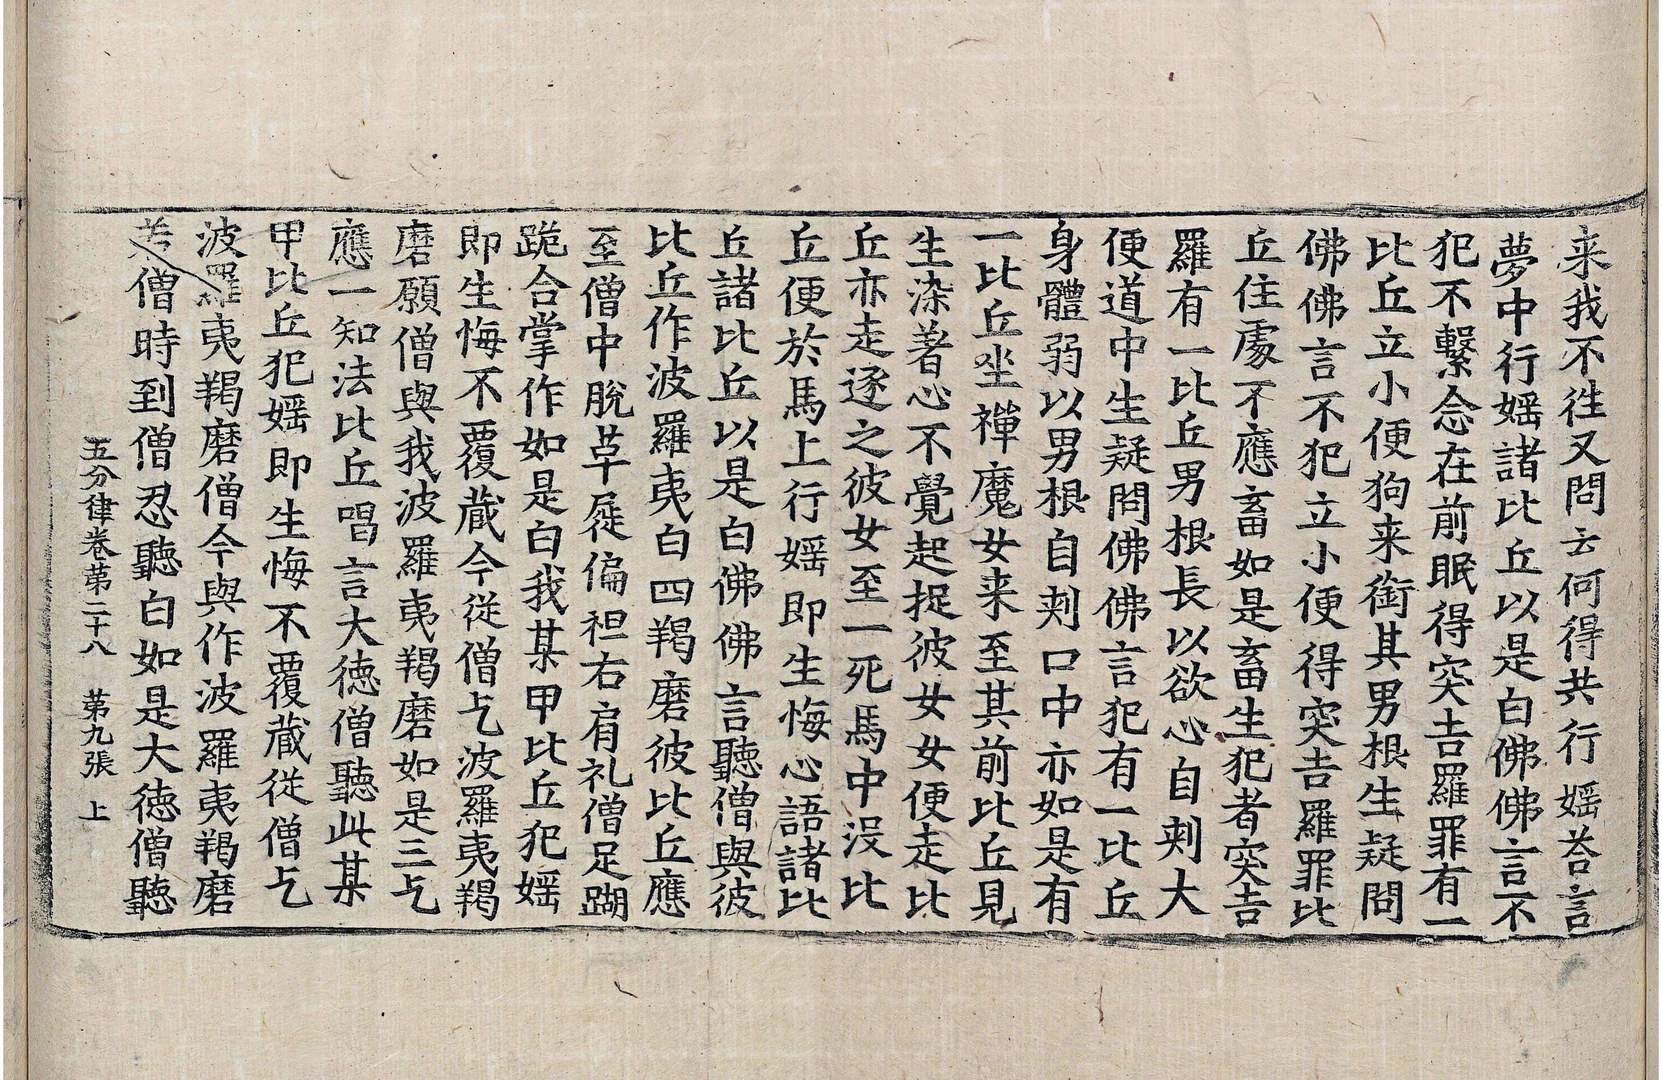 来我不往又問云何得共行婬荅言
夢中行婬諸比丘以是白佛佛言不
犯不繫念在前眠得突吉羅罪有一
比丘立小便狗来銜其男根生疑問
佛佛言不犯立小便得突吉羅罪比
丘住處不應畜如是畜生犯者突吉
羅有一比丘男根長以欲心自刾大
便道中生疑問佛佛言犯有一比丘
身體弱以男根自刾口中亦如是有
一比丘坐禪魔女来至其前比丘見
生染著心不覺起捉彼女女便走比
丘亦走逐之彼女至一死馬中没比
丘便於馬上行婬即生悔心語諸比
丘諸比丘以是白佛佛言聽僧與彼
比丘作波羅夷白四羯磨彼比丘應
至僧中脫草屣偏袒右肩礼僧足䠒
跪合掌作如是白我某甲比丘犯婬
即生悔不覆蔵今從僧乞波羅夷羯
磨願僧與我波羅夷羯磨如是三乞
應一知法比丘唱言大徳僧聽此某
甲比丘犯婬即生悔不覆蔵從僧乞
波羅夷羯磨僧今與作波羅夷羯磨
若僧時到僧忍聽白如是大徳僧聽
五分律卷第二十八 第九張 上